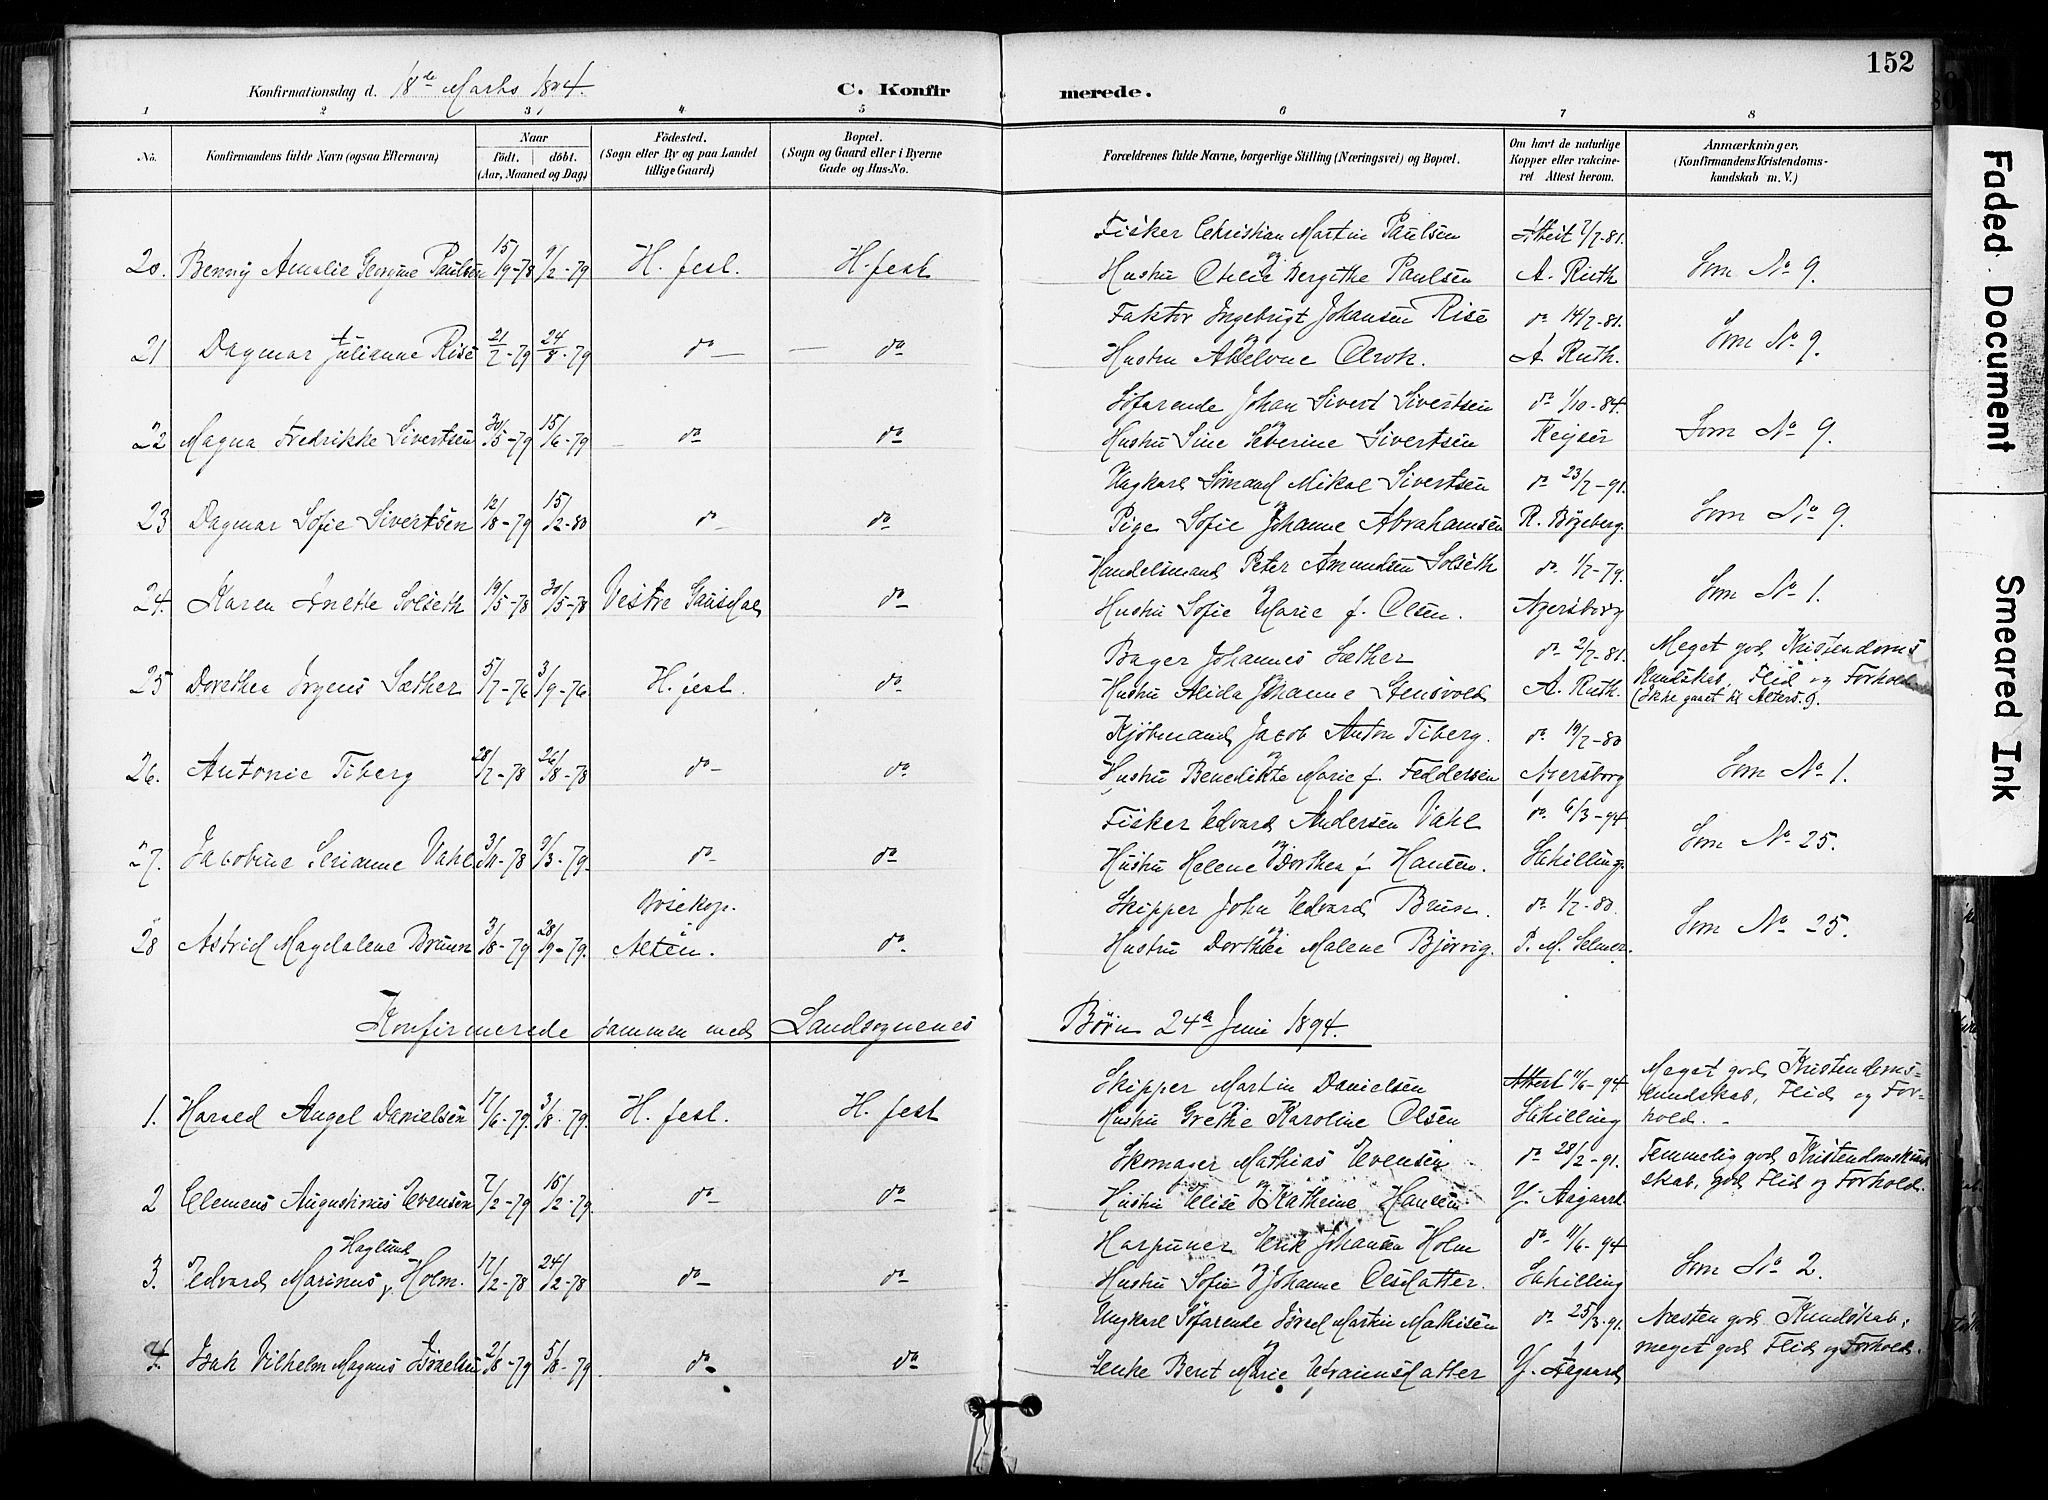 152
Konfirmationsdag d. 18de Marts 1894.
C. Konfirmerede.
1 2 3 4 5 6 7 8
No. Konfirmandens fulde Navn (ogsaa Efternavn) Naar födt. döbt. (Aar, Maaned og Dag) Födested. (Sogn eller By og paa Landet tillige Gaard) Bopæl. (Sogn og Gaard eller i Byerne Gade og Hus-No. Forældrenes fulde Navne, borgerlige Stilling (Næringsvei) og Bopæl. Om havt de naturlige Kopper eller vakcineret Attest herom. Anmærkninger. (Konfirmandens Kristendomskundskab m. V.)
Fisker Christian Martin Paulsen Attest 7/7-81.
20. Benny Amalie Paulsen 15/9-78 9/2-79 H. fest. H. fest Hustru Otilie Bergithe Paulsen A. Ruth Som No 9.
Faktor Ingebrigt Johansen Rise do 14/7-81.
21 Dagmar Julianne Rise 21/7-79 24/8-79 do do Hustru A. Ruth. Som No 9.
Søfarende Johan Sivert Sivertsen do 1/10-84.
22 Magna Fredrikke Sivertsen 30/5-79 15/6-79 do do Hustru Sine Severine Sivertsen Keyser Som No 9.
Ungkarl Sömand Mikal Sivertsen do 23/7-91.
23 Dagmar Sofie Sivertsen 12/8-79 15/2-80 do do Pige Sofie Johanne Abrahamsen R. Bögeberg. Som No 9.
Handelsmand Peter Amundsen Solseth do 1/7-79.
24. Karen Anette Solseth 19/5-78 30/5-78 Vestre Gausdal do Hustru Sofie Marie f. Olsen. Agersborg Som No 1.
Bager Johannes Sæther do 2/7-81. Meget god Kristendoms
25 Dorethea Sæther 5/7-76 3/9-76 H. fest. do Hustru Alida Johanne Stensvold A. Ruth. Kundskab, Flid og Forhold
(Ikke gaaet til Alters.).
Kjöbmand Jacob Anton Tiberg. do 19/7-80
26. Antonie Tiberg 28/7-78 26/8-78 do do Hustru Benedikte Marie f. Feddersen Agersborg Som No 1.
Fisker Edvard Andersen Vahl do 6/3-94
27. Jacobine Serianne Vahl 3/11-78 9/3-79. do do Hustru Helene Dorthea f. Hansen. Schilling. Som No 25.
Bosekop. Skipper John Edvard Bruun. do 1/7-80.
28 Astrid Magdalene Bruun 3/8-79 28/9-79. Alten. do Hustru Dorthea Malene Bjørvig. P. M. Selmer. Som No 25.
Konfirmerede sammen med Landsognenes Börn 24de Juni 1894.
Skipper Martin Danielsen Attest 11/6-94 Meget god Kristendoms-
1. Harald Angel Danielsen 17/6-79. 3/8-79. H. fest. H. fest Hustru Grethe Karoline Olsen Schilling kundskab, Flid og Forhold.
Skomager Mathias Evensen do 28/2-91. Temmelig god Kristendomskund
2 Clemens Augustinus Evensen 7/2-79 16/2-79. do do Hustru Elise Kathrine Hansen Y. Aagaard skab, god Flid og Forhold.
Haglund Harpuner Erik Johansen Holm do 11/6-94
3. Edvard Marinus Holm. 17/2-78 24/2-78 do do Hustru Sofie Johanne Olsdatter. Schilling Som No 2.
Ungkarl Söfarende Martin Mathisen do 25/3-91. Næsten god Kundskab,
4. Isak Vilhelm Magnus 2/8-79 5/8-79 do do Enke Berit Marie Y. Aagaard meget god Flid og Forhold.
Faded Document
Smeared Ink